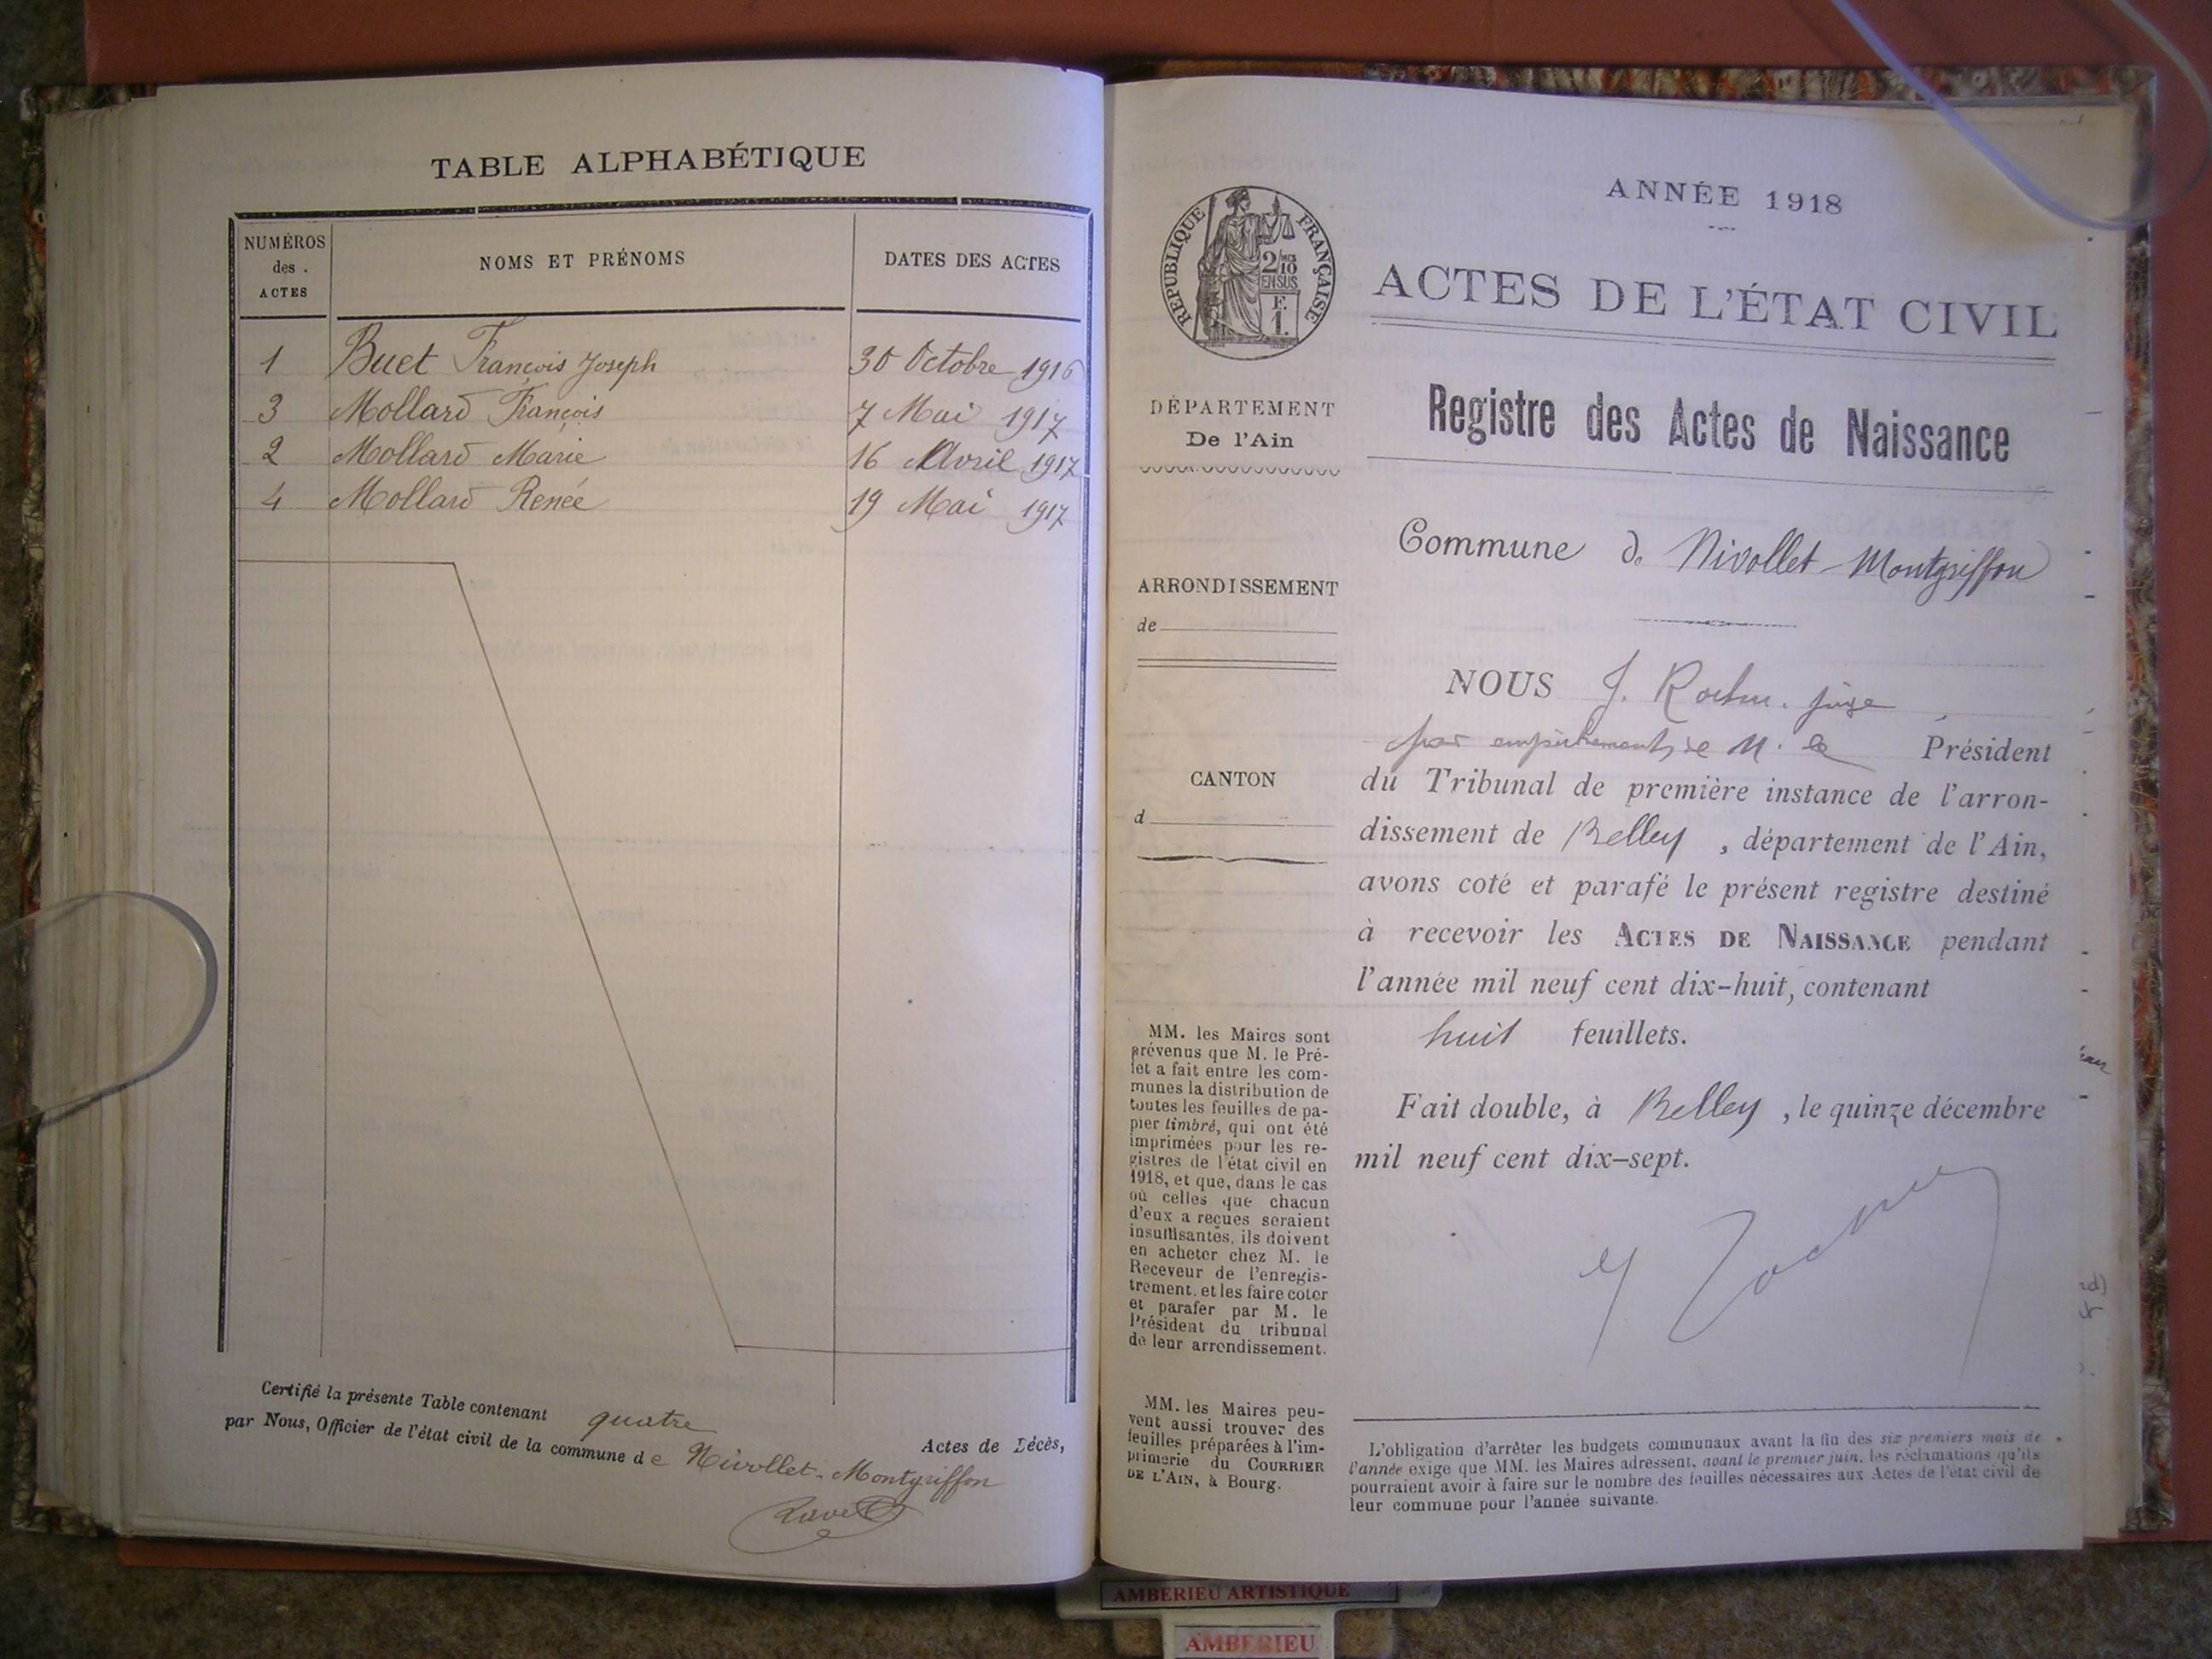 TABLE ALPHABÉTIQUE
NUMÉROS des ACTES
NOMS ET PRÉNOMS
DATES DES ACTES
1 Buet François Joseph 30 Octobre 1916
3 Mollard François 7 Mai 1917
2 Mollard Marie 16 Avril 1917
4 Mollard Renée 19 Mai 1917
Certifié la présente Table contenant quatre Actes de Décès,
par Nous, Officier de l'état civil de la commune de Nivollet-Montgriffon
Ravet
RÉPUBLIQUE FRANÇAISE
2/10
EN SUS
F.
1.
DÉPARTEMENT
De l'Ain
ARRONDISSEMENT
de
CANTON
d
MM. les Maires sont
prévenus que M. le Pré-
fet a fait entre les com-
munes la distribution de
toutes les feuilles de pa-
pier timbré, qui ont été
imprimées pour les re-
gistres de l'état civil en
1918, et que, dans le cas
où celles que chacun
d'eux a reçues seraient
insuffisantes, ils doivent
en acheter chez M. le
Receveur de l'enregis-
trement, et les faire coter
et parafer par M. le
Président du tribunal
de leur arrondissement.
MM. les Maires peu-
vent aussi trouver des
feuilles préparées à l'im-
primerie du COURRIER
DE L'AIN, à Bourg.
ANNÉE 1918
ACTES DE L'ÉTAT CIVIL
Registre des Actes de Naissance
Commune de Nivollet-Montgriffon
NOUS J. juge
par empêchement de M. le Président
du Tribunal de première instance de l'arron-
dissement de Belley, département de l'Ain,
avons coté et parafé le présent registre destiné
à recevoir les ACTES DE NAISSANCE pendant
l'année mil neuf cent dix-huit, contenant
huit feuillets.
Fait double, à Belley, le quinze décembre
mil neuf cent dix-sept.
L'obligation d'arrêter les budgets communaux avant la fin des six premiers mois de
l'année exige que MM. les Maires adressent, avant le premier juin, les réclamations qu'ils
pourraient avoir à faire sur le nombre des feuilles nécessaires aux Actes de l'état civil de
leur commune pour l'année suivante.
AMBERIEU ARTISTIQUE
AMBERIEU